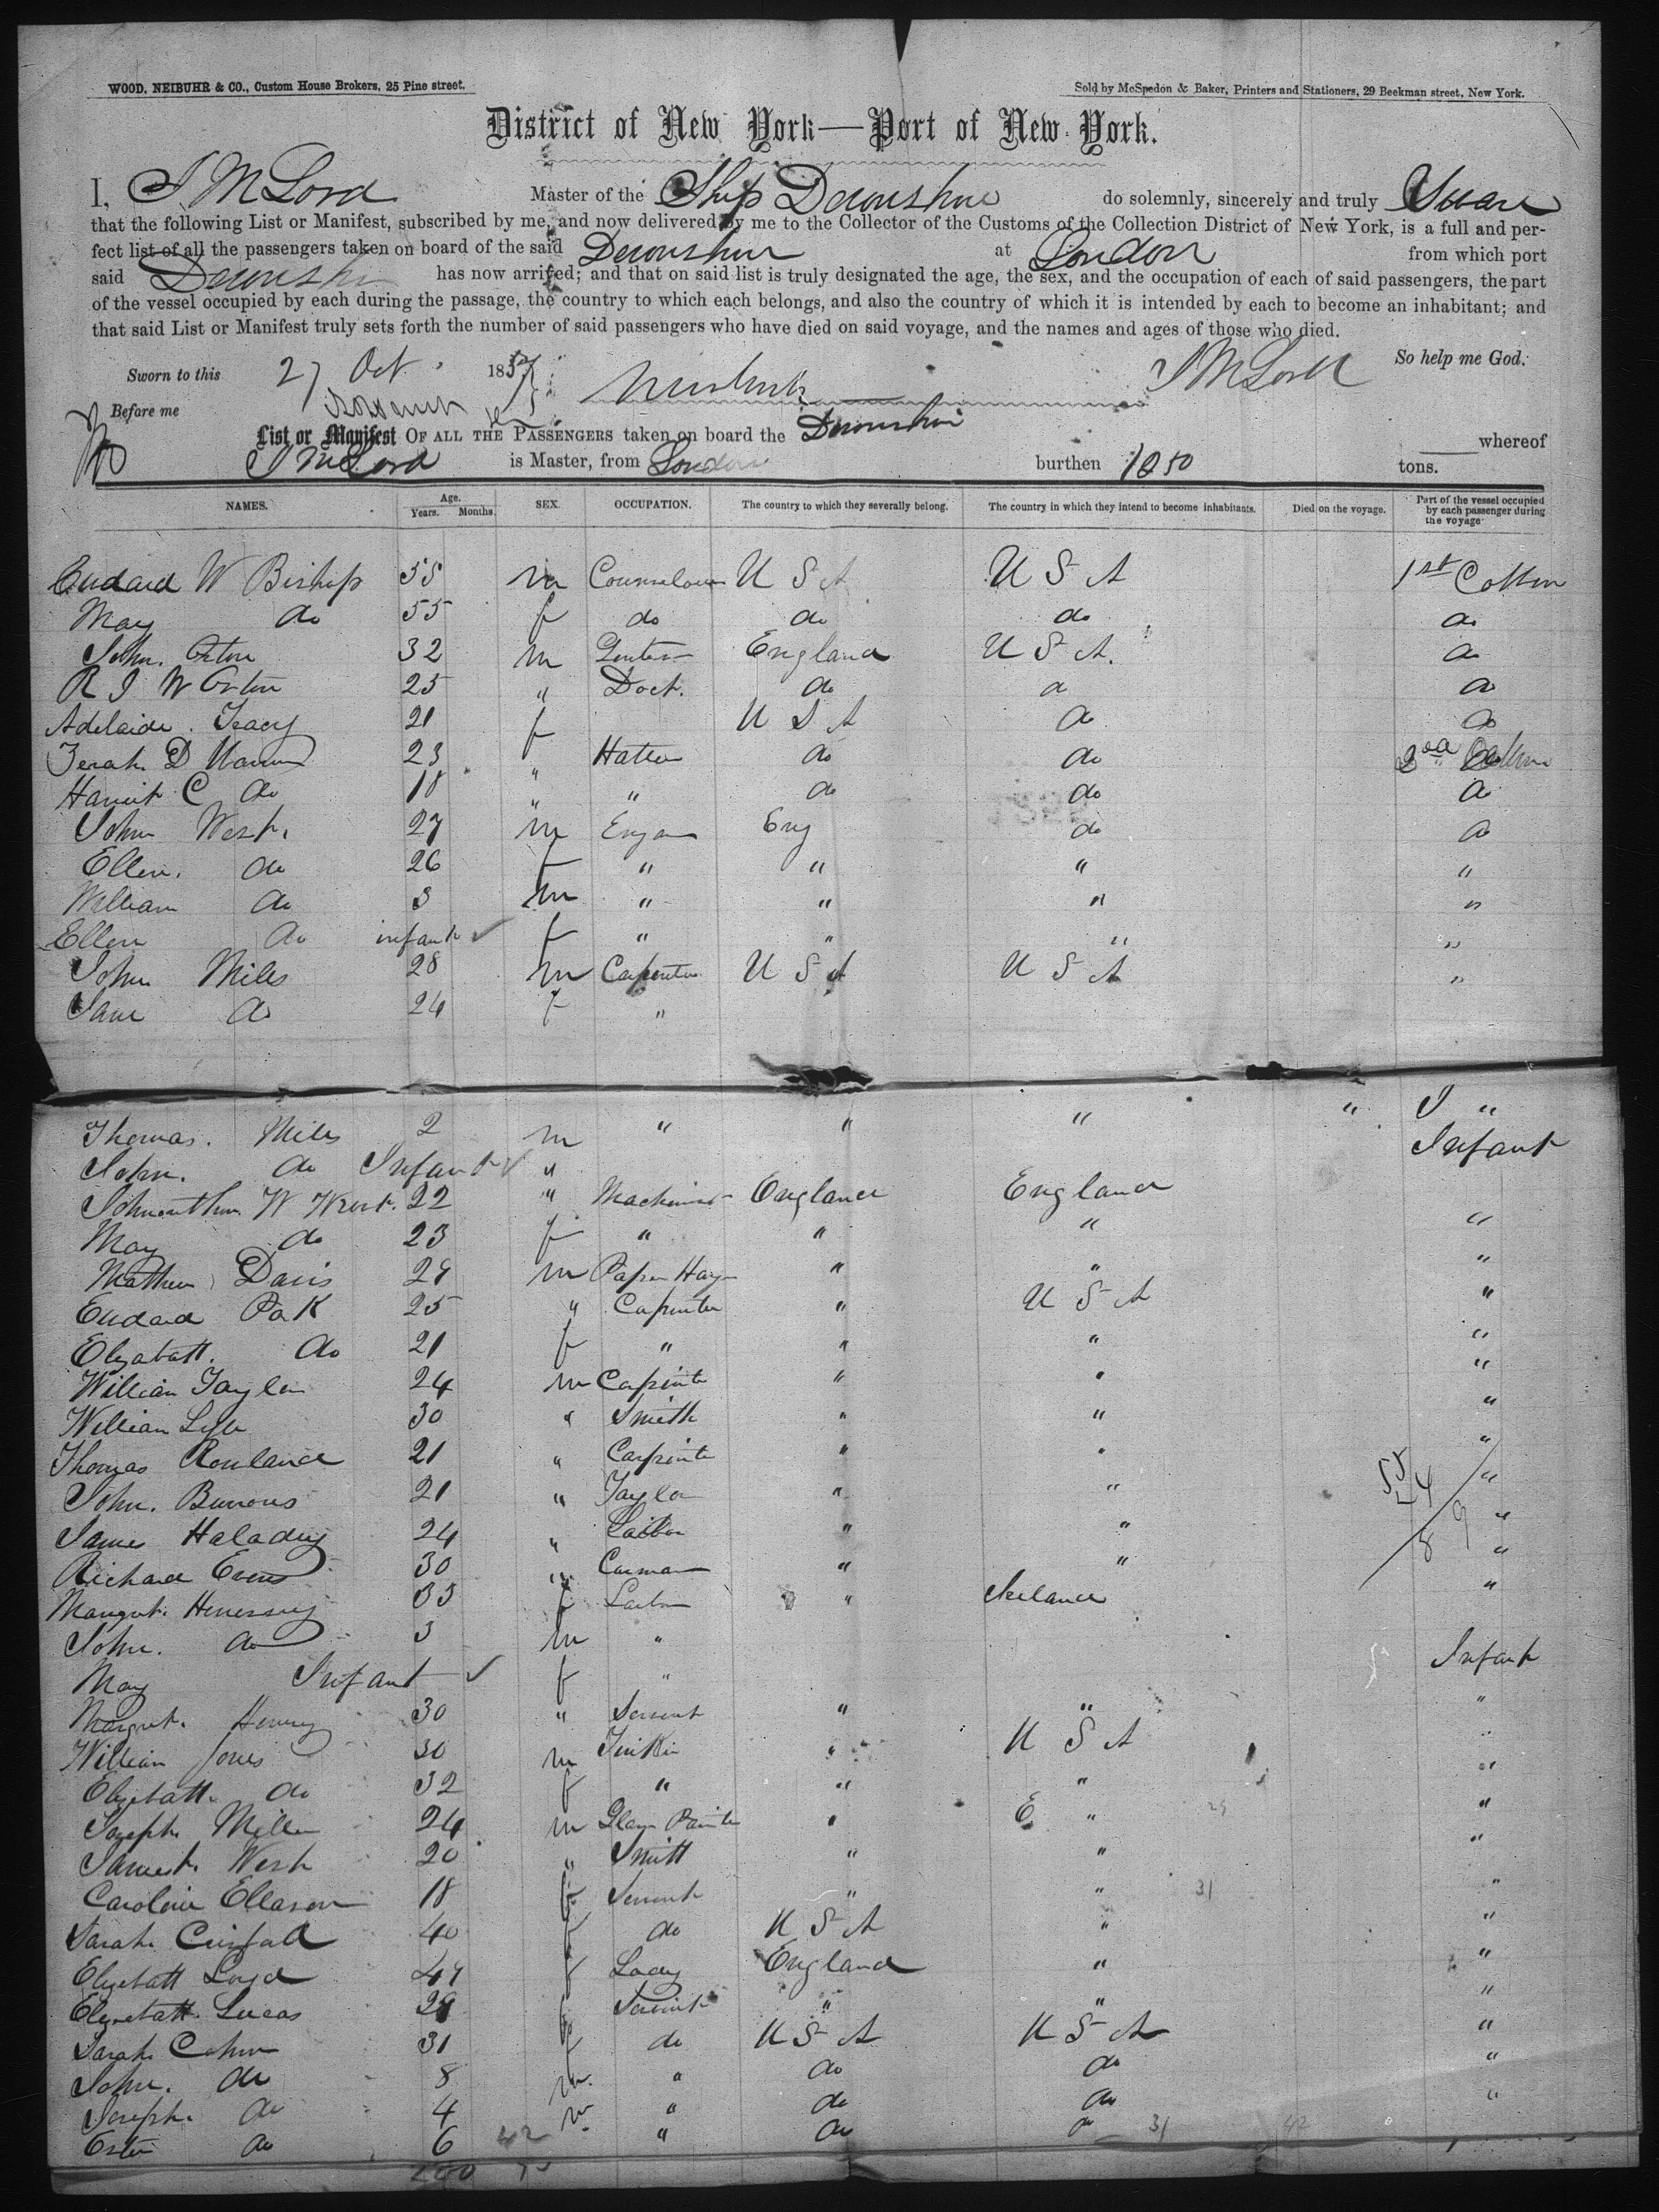 WOOD, NEIBUHR & CO., Custom House Brokers, 25 Pine street.
Sold by McSpedon & Baker, Printers and Stationers, 29 Beekman street, New York.
District of New York—Port of New York.
I, J M Lord Master of the Ship Devonshire do solemnly, sincerely and truly Swear
that the following List or Manifest, subscribed by me, and now delivered by me to the Collector of the Customs of the Collection District of New York, is a full and per-
fect list of all the passengers taken on board of the said Devonshire at London from which port
said Devonshire has now arrived; and that on said list is truly designated the age, the sex, and the occupation of each of said passengers, the part
of the vessel occupied by each during the passage, the country to which each belongs, and also the country of which it is intended by each to become an inhabitant; and
that said List or Manifest truly sets forth the number of said passengers who have died on said voyage, and the names and ages of those who died.
So help me God.
Sworn to this 27 Oct 1857 J M Lord
Before me
List or Manifest OF ALL THE PASSENGERS taken on board the Devonshire whereof
J M Lord is Master, from London burthen 1250 tons.
NAMES. Age. Years. Months. SEX. OCCUPATION. The country to which they severally belong. The country in which they intend to become inhabitants. Died on the voyage. Part of the vessel occupied by each passenger during the voyage
Edward W Bishop 55 m U S A U S A 1st
May do 55 f do do do do
John Orton 32 m England U S A. do
R J W Orton 25 " Doct. do do do
Adelaide Tracy 21 f U S A do do
23 Hatter do do 2nd
Harriet C do 18 " " do do do
John West 27 m Eng do do
Ellen do 26 f " " " "
William do 3 m " " " "
Ellen do infant ✓ f " " " "
John Miles 28 m Carpenter U S A U S A "
Jane do 24 f "
Thomas Miles 2 m " " " " "
John do Infant ✓ " Infant
W West 22 " Machinist England England
May do 23 f " " " "
Mathew Davis 29 m Paper Hang " " "
Edward Park 25 " Carpenter " U S A "
Elizabath do 21 f " " " "
William Taylor 24 m Carpinter " " "
William Lyle 30 " Smith " " "
Thomas Rowland 21 " Carpinter " " "
John Burrows 21 " Taylor " " "
James Halady 24 " " " "
Richard Evens 30 " Carman " " "
Margrt Henessey 33 f " Ireland "
John do 3 m "
May Infant ✓ f " Infant
Margrt Henry 30 " Servent " " "
William Jones 30 m " U S A "
Elizabath do 32 f " " " "
Joseph Miller 24 m " E " "
James West 20 " Smith " " "
Caroline Ellason 18 f Servent " " "
Sarah 40 f do U S A " "
Elizabath Loyd 47 f Lady England " "
Elizabath Lucas 29 f Servent " " "
Sarah Cohen 31 f do U S A U S A "
John do 8 m " do do "
Joseph do 4 m " do do "
Ester do 6 42 " do do 31 42